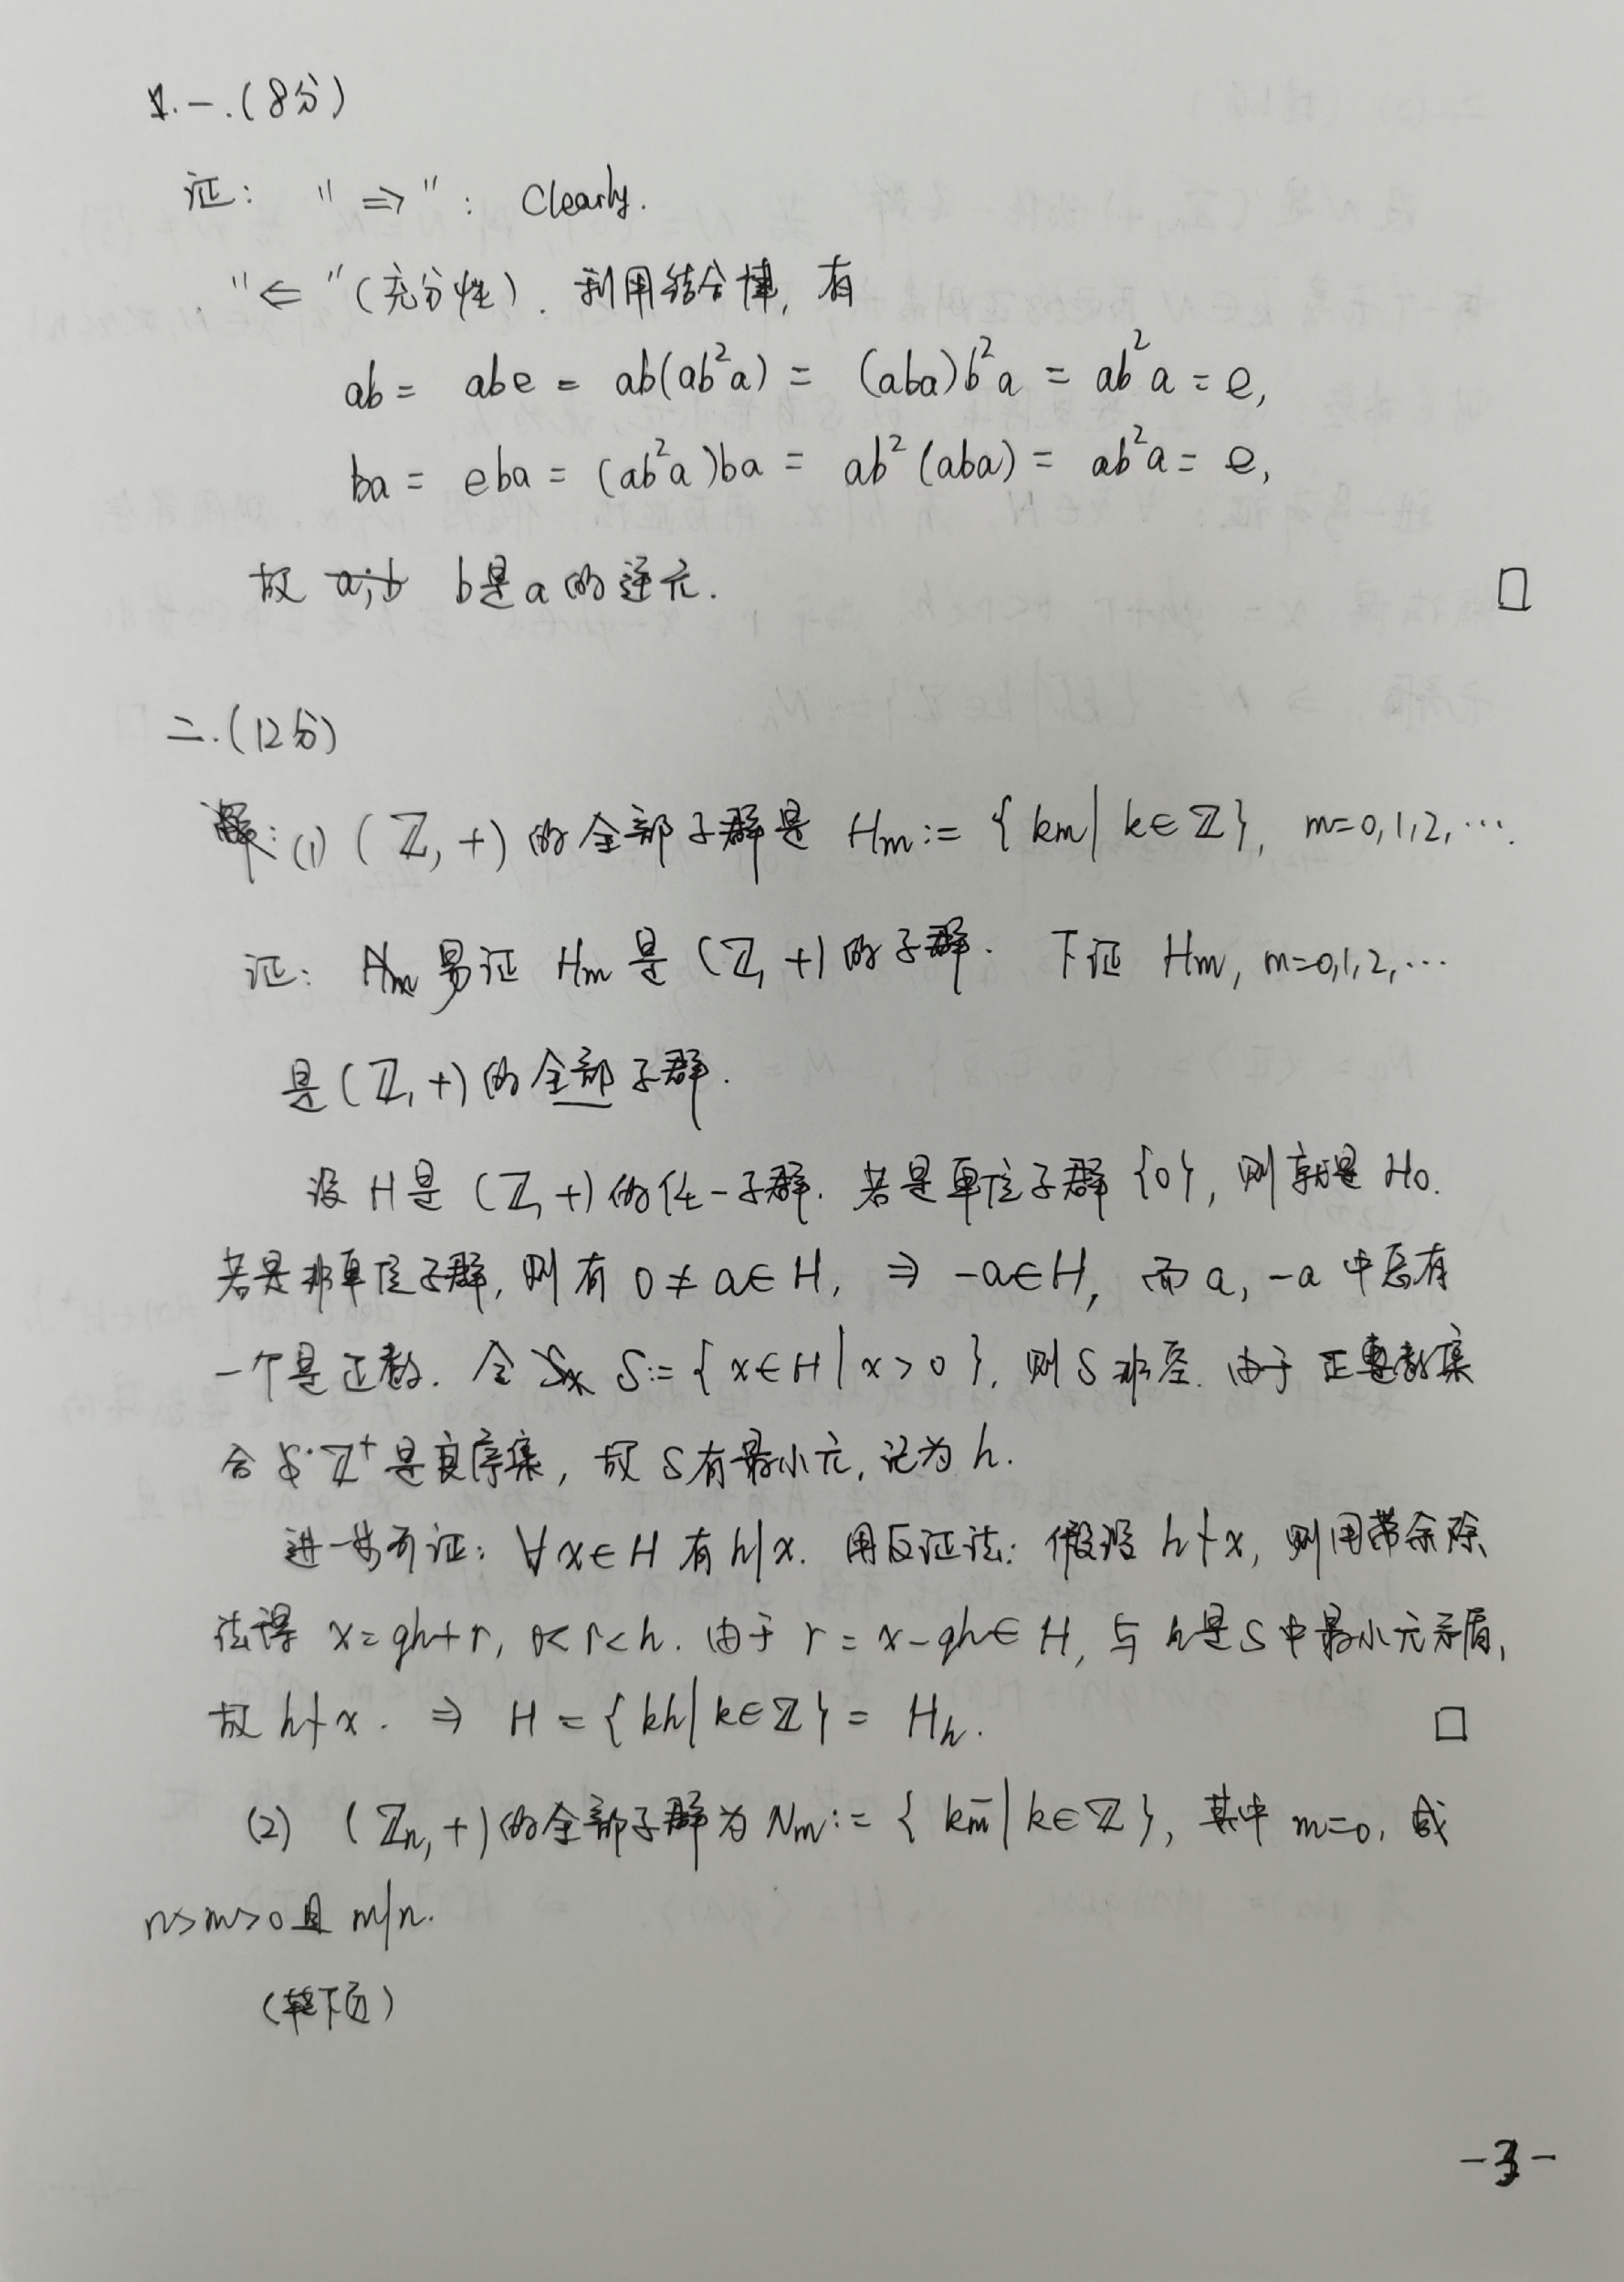 一.(8分)
证: "⇒": Clearly.
"⇐"(充分性). 利用结合律, 有
ab = abe = ab(ab²a) = (aba)b²a = ab²a = e,
ba = eba = (ab²a)ba = ab²(aba) = ab²a = e,
故 b是a的逆元. □
二.(12分)
解: (1) (ℤ, +) 的全部子群是 Hm := { km | k∈ℤ}, m=0,1,2,⋯.
证: 易证 Hm 是 (ℤ, +) 的子群. 下证 Hm, m=0,1,2,⋯
是(ℤ, +)的全部子群.
设 H是 (ℤ, +)的任一子群. 若是单位子群 {0}, 则就是 H₀.
若是非单位子群, 则有 0 ≠ a∈H, ⇒ -a∈H, 而 a, -a 中总有
一个是正数. 令 S := { x∈H | x>0 }, 则 S 非空. 由于 正整数集
合 ℤ⁺ 是良序集, 故 S有最小元, 记为 h.
进一步可证: ∀x∈H 有 h|x. 用反证法: 假设 h∤x, 则用带余除
法得 x=qh+r, 0<r<h. 由于 r = x-qh∈H, 与 h是S中最小元矛盾,
故 h∤x. ⇒ H = { kh | k∈ℤ} = Hh. □
(2) (ℤn, +)的全部子群为 Nm := { km̄ | k∈ℤ }, 其中 m=0, 或
n>m>0且 m|n.
(转下页)
-3-